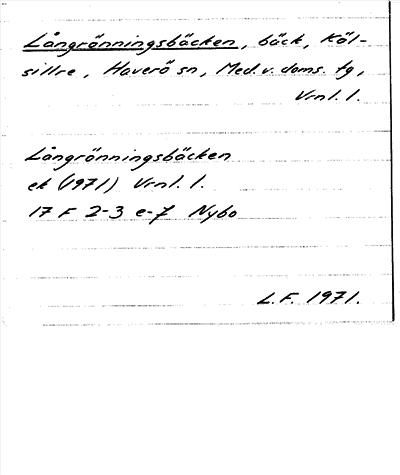 Långrönningsbäcken, bäck, Köl-
sillre, Haverö sn, Med. v. doms. tg,
Vrnl. l.
Långrönningsbäcken
ek (1971) Vrnl. l.
17 F 2-3 e-f Nybo
L.F. 1971.